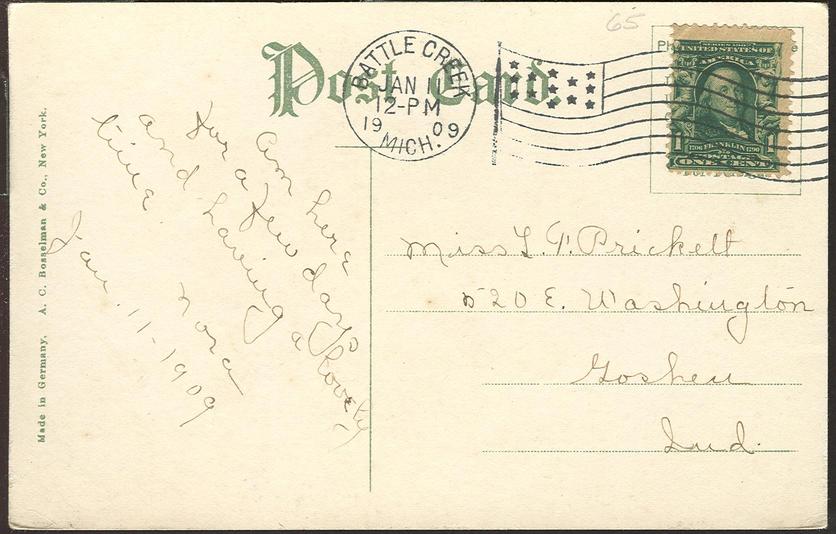 65
Post Card
BATTLE CREEK
JAN 11
12-PM
1909
MICH.
SERIES 1902
UNITED STATES OF
AMERICA
1 1706 FRANKLIN 1790 1
POSTAGE
ONE CENT
Am here
for a few days
and having a lovely
time.
Nora
Jan. 11-1909
Miss L. F. Prickett
520 E. Washington
Goshen
Ind.
Made in Germany. A. C. Bosselman & Co., New York.